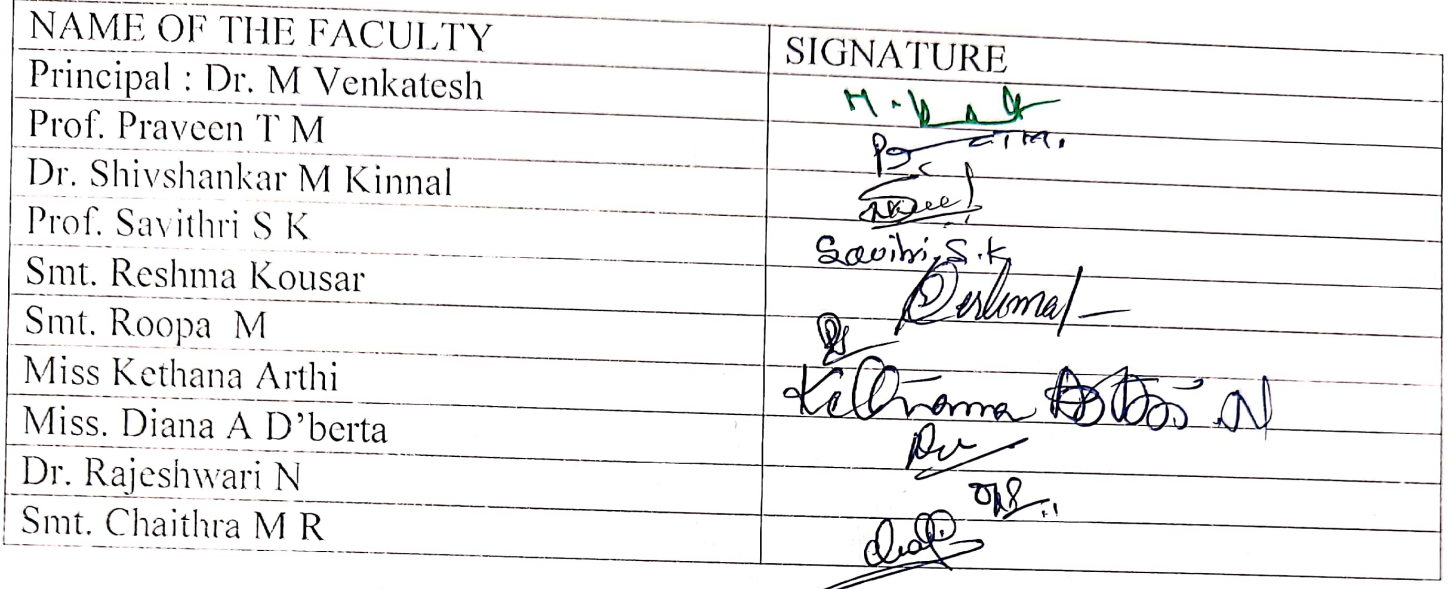 NAME OF THE FACULTY SIGNATURE
Principal : Dr. M Venkatesh
Prof. Praveen T M
Dr. Shivshankar M Kinnal
Prof. Savithri S K Savithri, S.K
Smt. Reshma Kousar Reshma
Smt. Roopa M
Miss Kethana Arthi
Miss. Diana A D'berta
Dr. Rajeshwari N
Smt. Chaithra M R